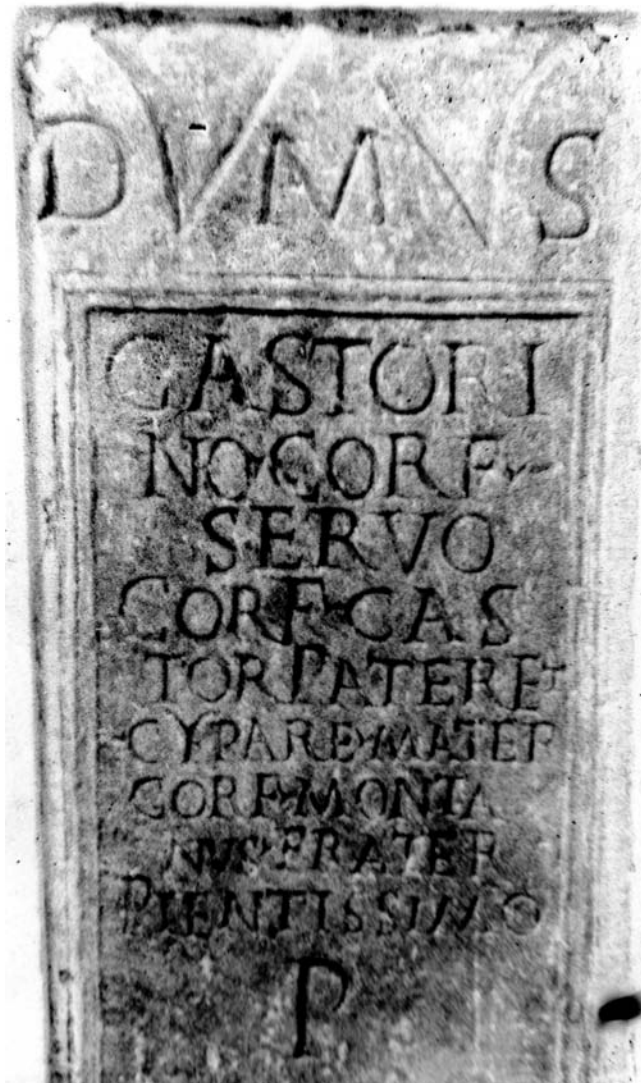 D M S
CASTORI
NO·CORF
SERVO
CORF·CAS
TOR PATER ET
CYPARE·MATER
CORF·MONTA
NVS·FRATER
PIENTISSIMO
P